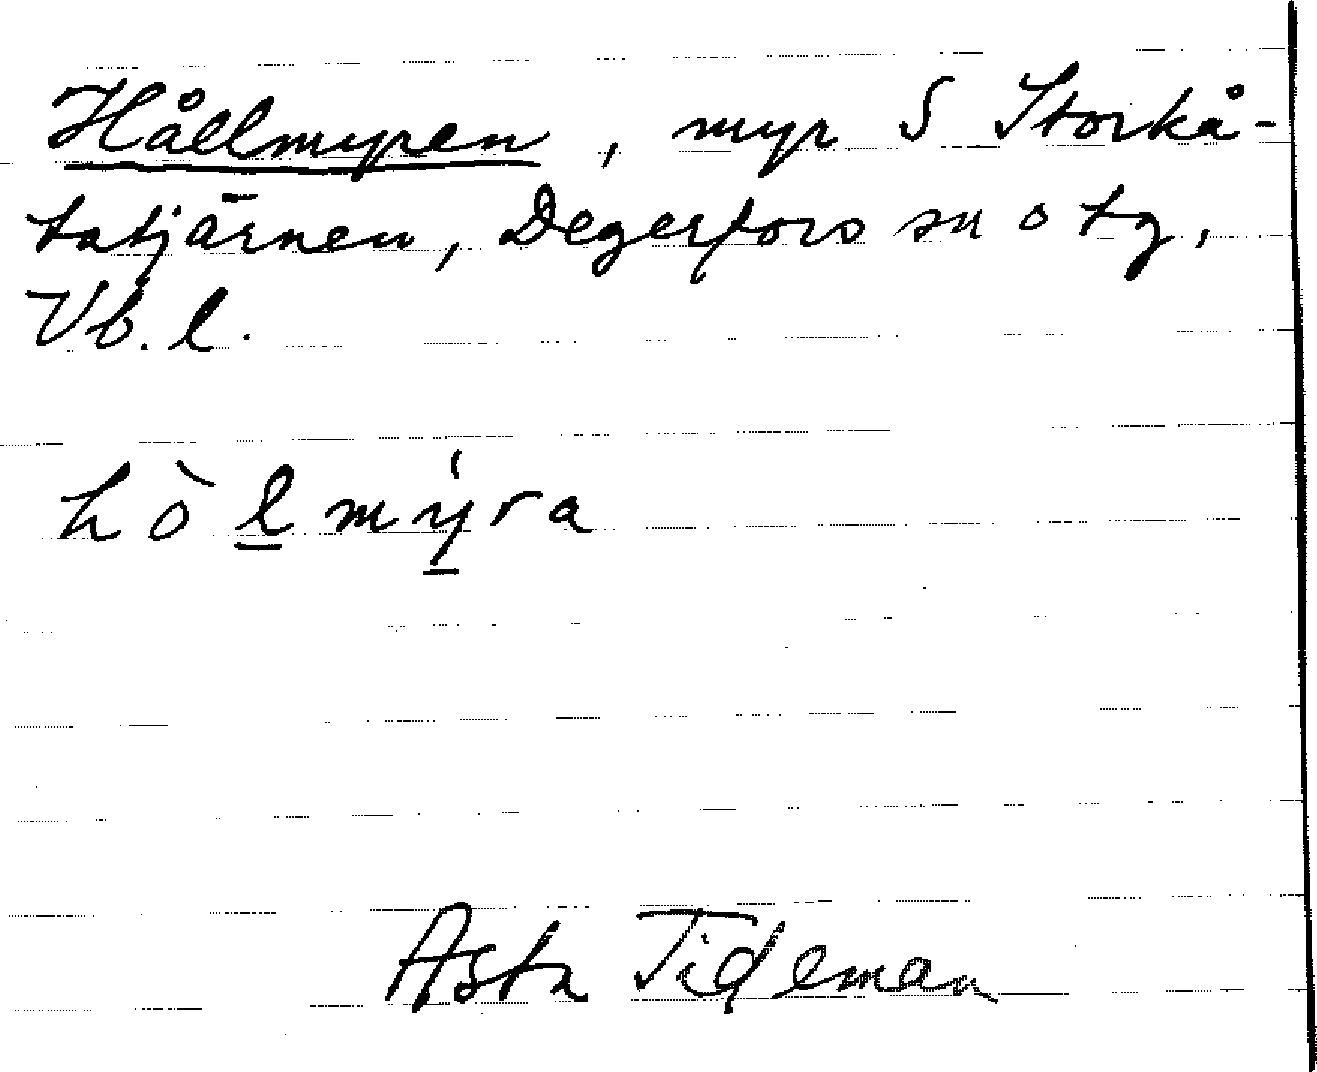 Hållmyren, myr S Storkå-
tatjärnen, Degerfors sn o tg,
Vb. l.
hòl̲mý̲ra
Asta Tideman